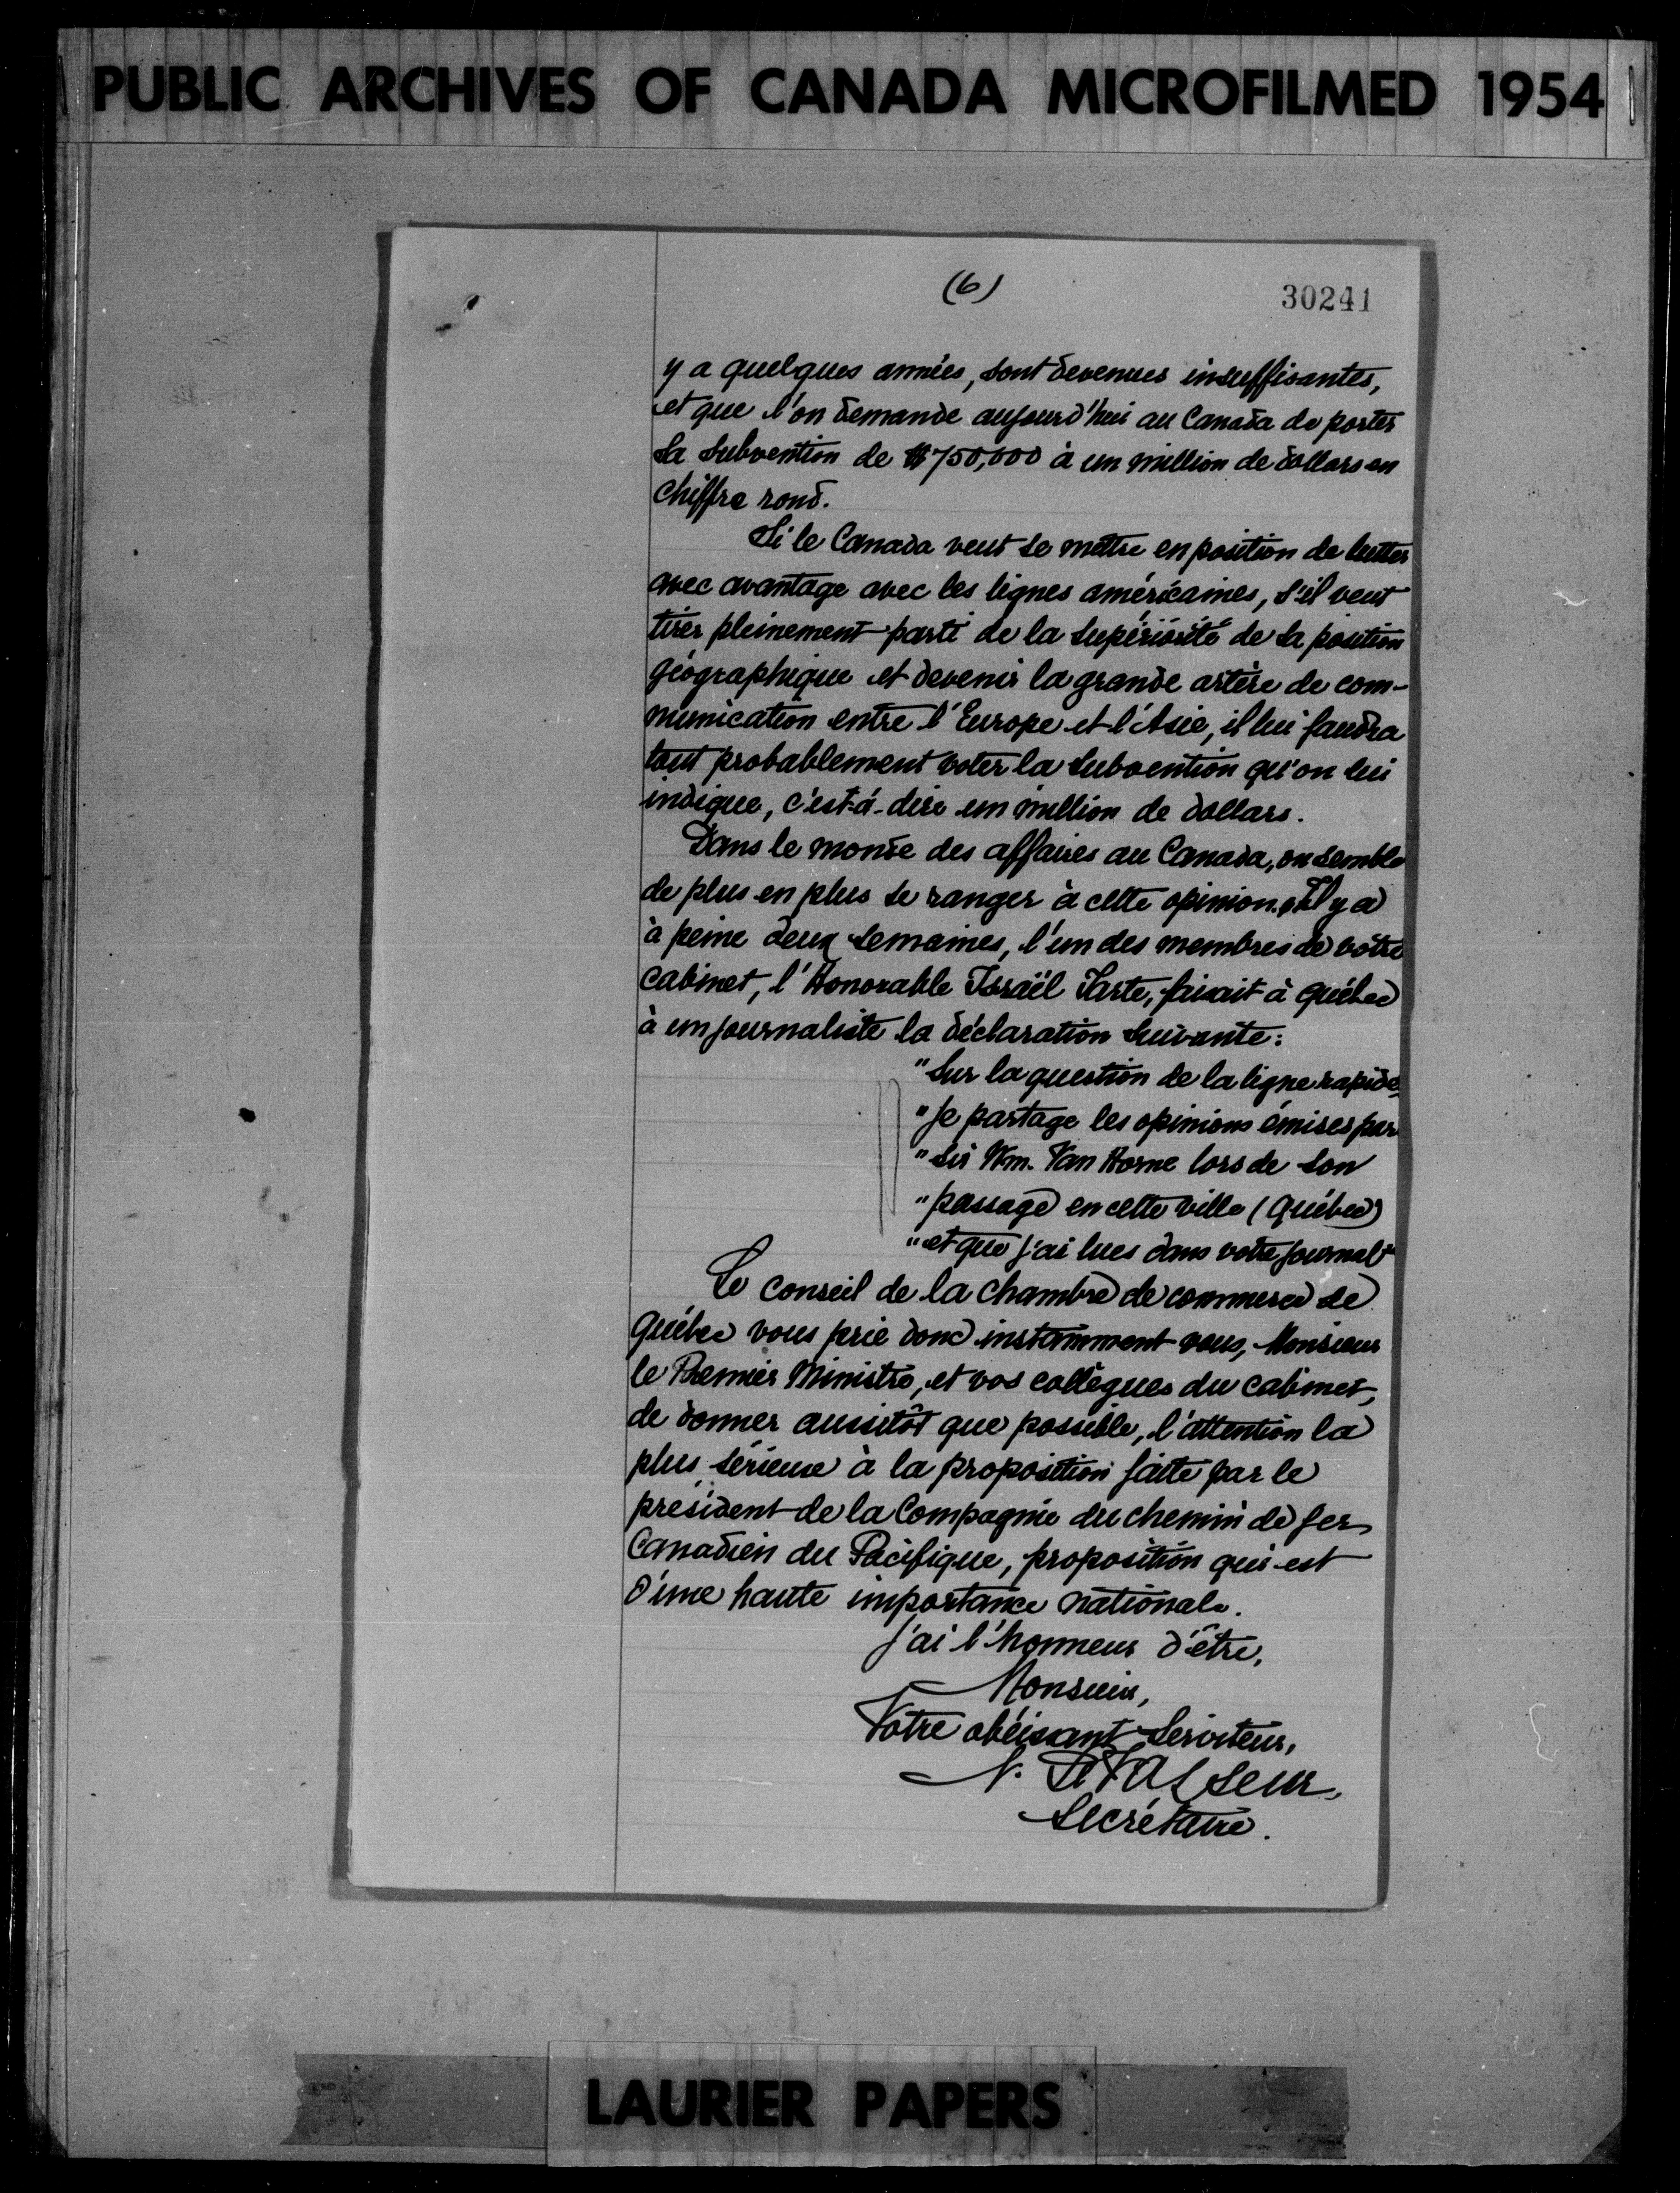 PUBLIC ARCHIVES OF CANADA MICROFILMED 1954
(6)
30241
y a quelques années, sont devenues insuffisantes,
et que l'on demande aujourd'hui au Canada de porter
sa subvention de $750,000 à un million de dollars en
chiffre rond.
Si le Canada veut se mettre en position de lutter
avec avantage avec les lignes américaines, s'il veut
tirer pleinement parti de la supériorité de sa position
géographique et devenir la grande artère de com-
munication entre l'Europe et l'Asie, il lui faudra
tout probablement voter la subvention qu'on lui
indique, c'est-à-dire un million de dollars.
Dans le monde des affaires au Canada, on semble
de plus en plus se ranger à cette opinion. Il y a
à peine deux semaines, l'un des membres de votre
cabinet, l'Honorable Israël Tarte, faisait à Québec
à un journaliste la déclaration suivante:
"Sur la question de la ligne rapide,
"je partage les opinions émises par
"Sir Wm. Van Horne lors de son
"passage en cette ville (Québec)
"et que j'ai lues dans votre journal"
Le conseil de la chambre de commerce de
Québec vous prie donc instamment vous, Monsieur
le Premier Ministre, et vos collègues du cabinet,
de donner aussitôt que possible, l'attention la
plus sérieuse à la proposition faite par le
président de la Compagnie du chemin de fer
Canadien du Pacifique, proposition qui est
d'une haute importance nationale.
J'ai l'honneur d'être,
Monsieur,
Votre obéissant Serviteur,
N. LeVasseur,
Secrétaire.
LAURIER PAPERS